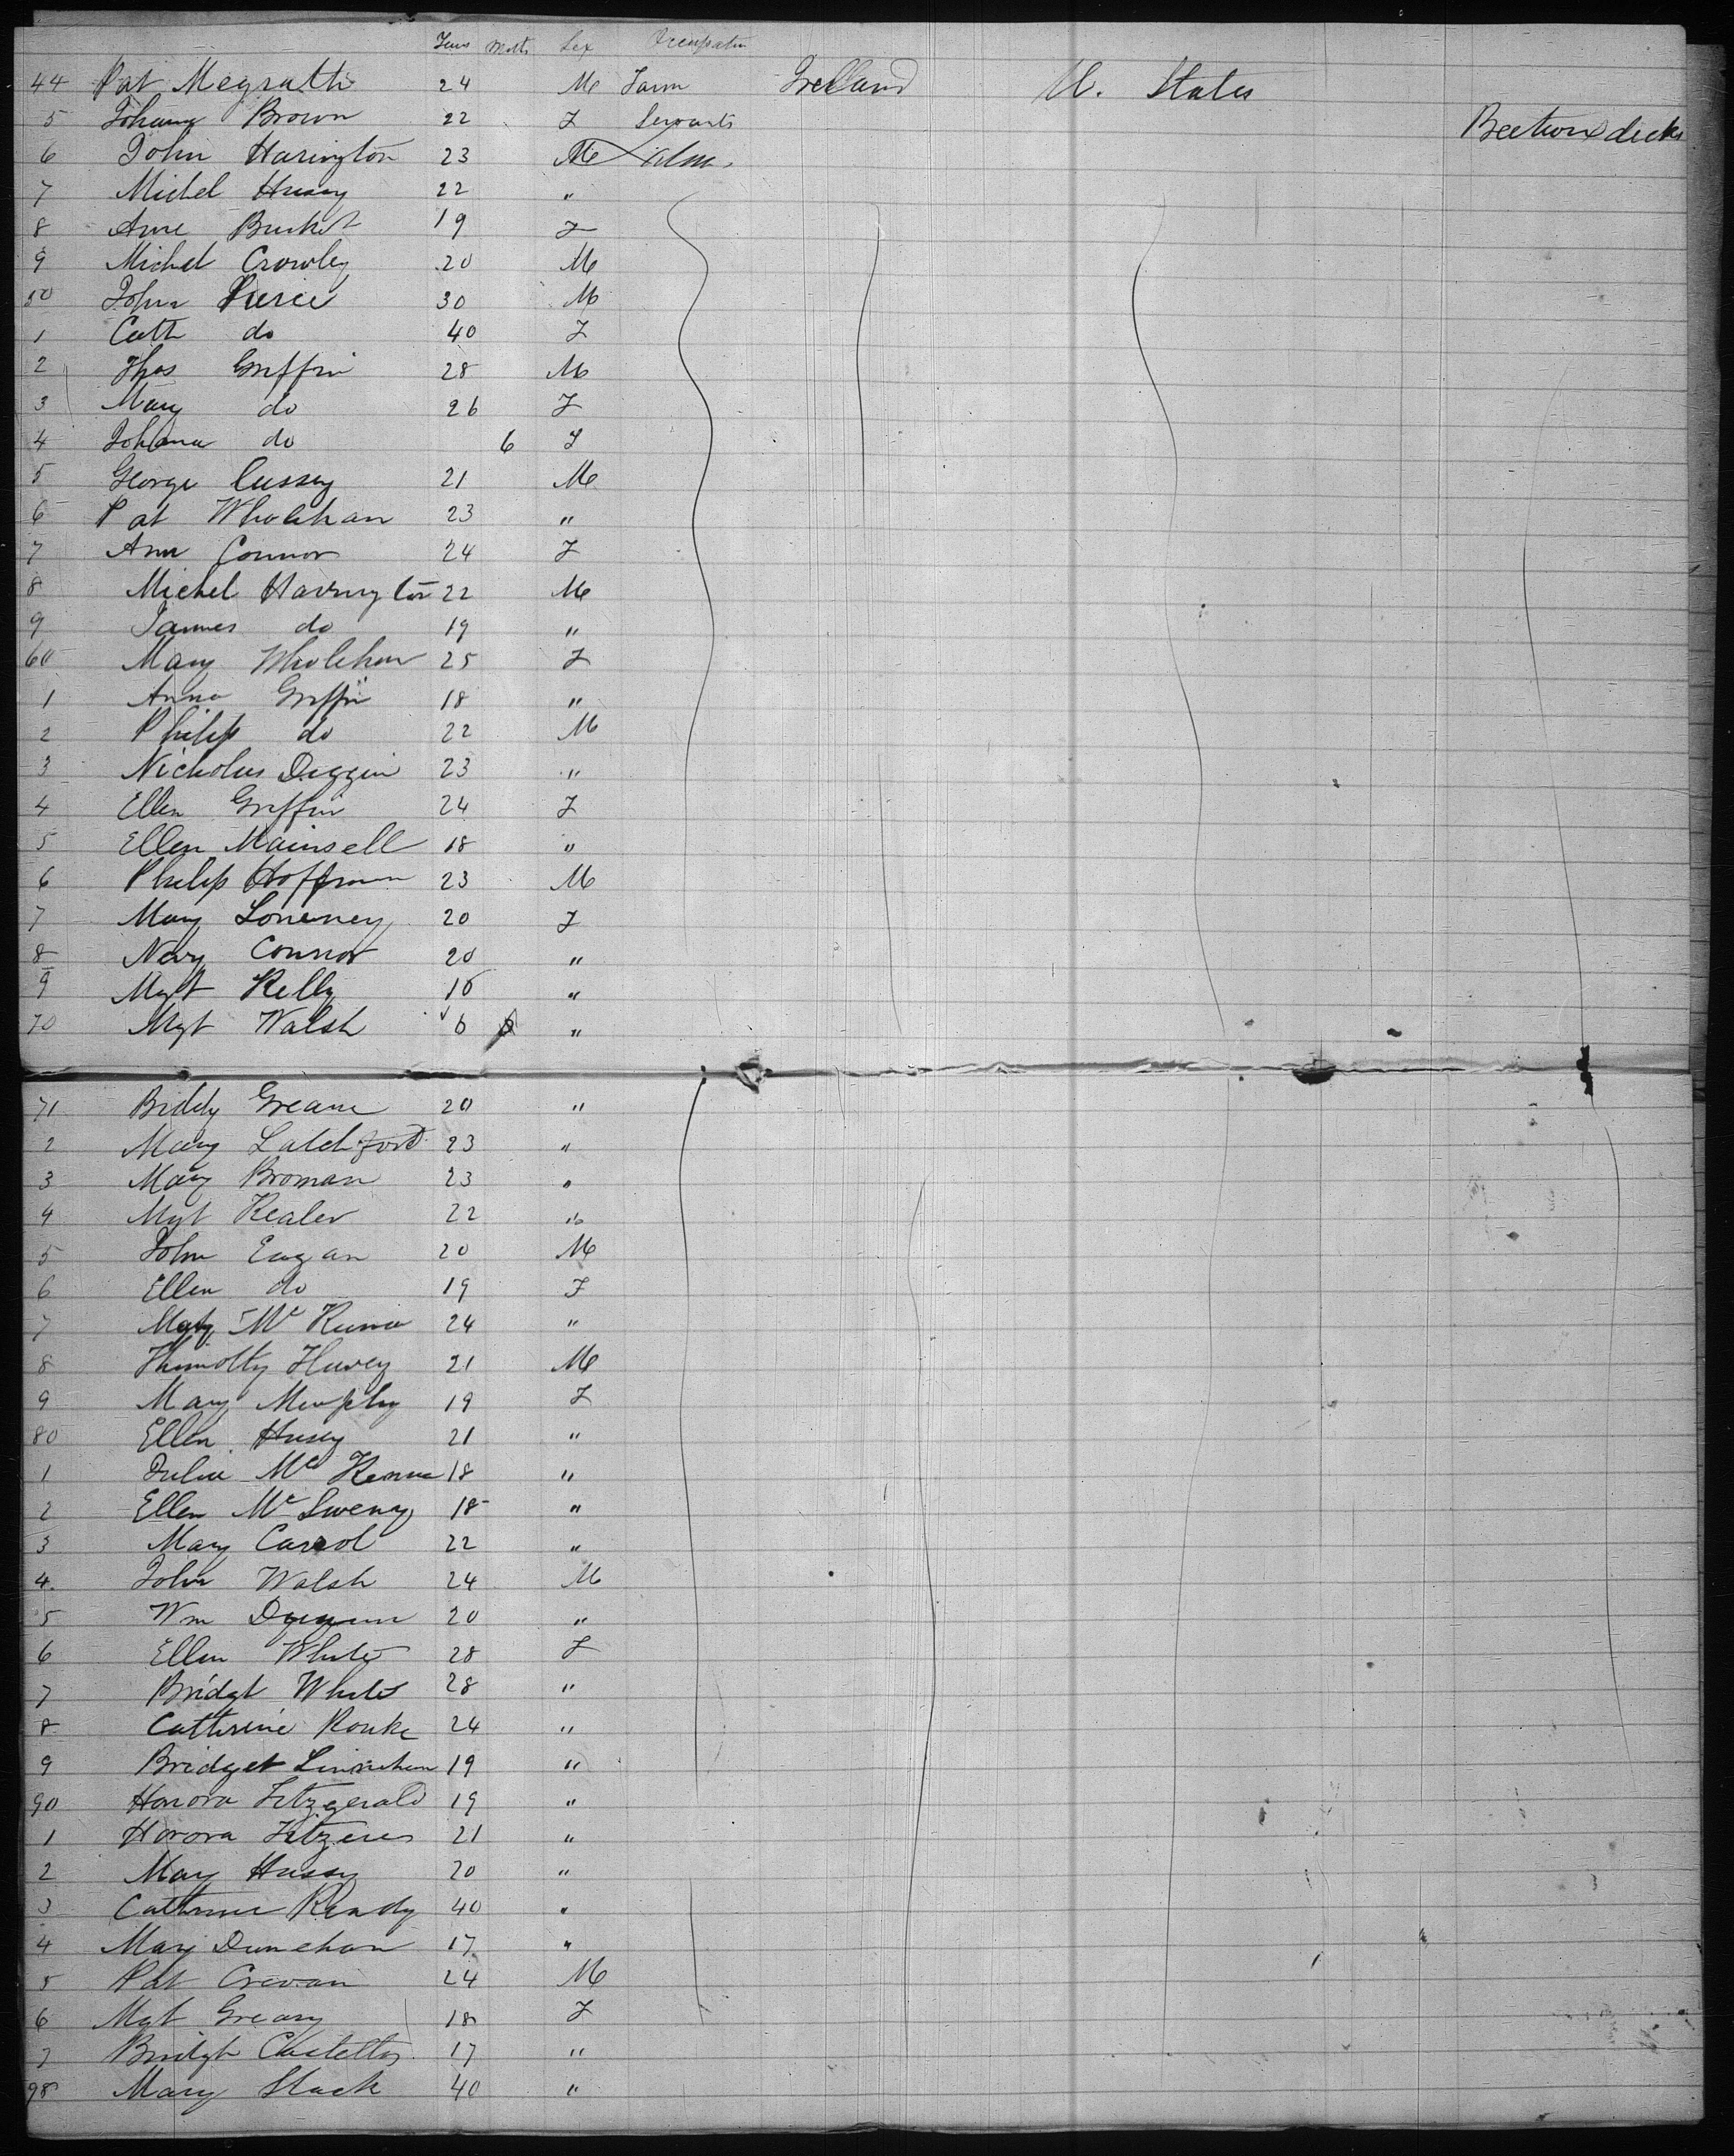 Years Mnths Sex Occupation
44 Pat Megrath 24 M Farm Ireland U. States
5 Johana Brown 22 F Servants Between decks
6 John Harington 23 M
7 Michel Hussy 22 "
8 Ane Burket 19 F
9 Michel Crowley 20 M
50 John Pierce 30 M
1 Cath do 40 F
2 Thos Griffin 28 M
3 Mary do 26 F
4 Johana do 6 F
5 George Cussey 21 M
6 Pat Wholehan 23 "
7 Ann Connor 24 F
8 Michel Harrington 22 M
9 James do 19 "
60 Mary Wholehan 25 F
1 Anna Griffin 18 "
2 Philip do 22 M
3 Nicholus Diggin 23 "
4 Ellen Griffin 24 F
5 Ellen Mainsell 18 "
6 Philip Hoffman 23 M
7 Mary Loneney 20 F
8 Nary Connor 20 "
9 Mgt Kelly 16 "
70 Mgt Walsh 6 "
71 Biddy Greane 20 "
2 Mary Latchford 23 "
3 Mary Broman 23 "
4 Mgt Kealer 22 "
5 John Eagan 20 M
6 Ellen do 19 F
7 Mary Mc Kenna 24 "
8 Thimothy Huvey 21 M
9 Mary Murphy 19 F
80 Ellen Husey 21 "
1 Julia Mc Kenna 18 "
2 Ellen Mc Sweny 18 "
3 Mary Carrol 22 "
4 John Walsh 24 M
5 Wm Duggan 20 "
6 Ellen White 28 F
7 Bridgt White 28 "
8 Catherine Rourke 24 "
9 Bridget Linnehan 19 "
90 Honora Fitzgerald 19 "
1 Honora 21 "
2 Mary Hussy 20 "
3 Cathrine Ready 40 "
4 Mary Dunehan 17 "
5 Pat Crevan 24 M
6 Mgt Greany 18 F
7 Bridgt 17 "
98 Mary Slack 40 "